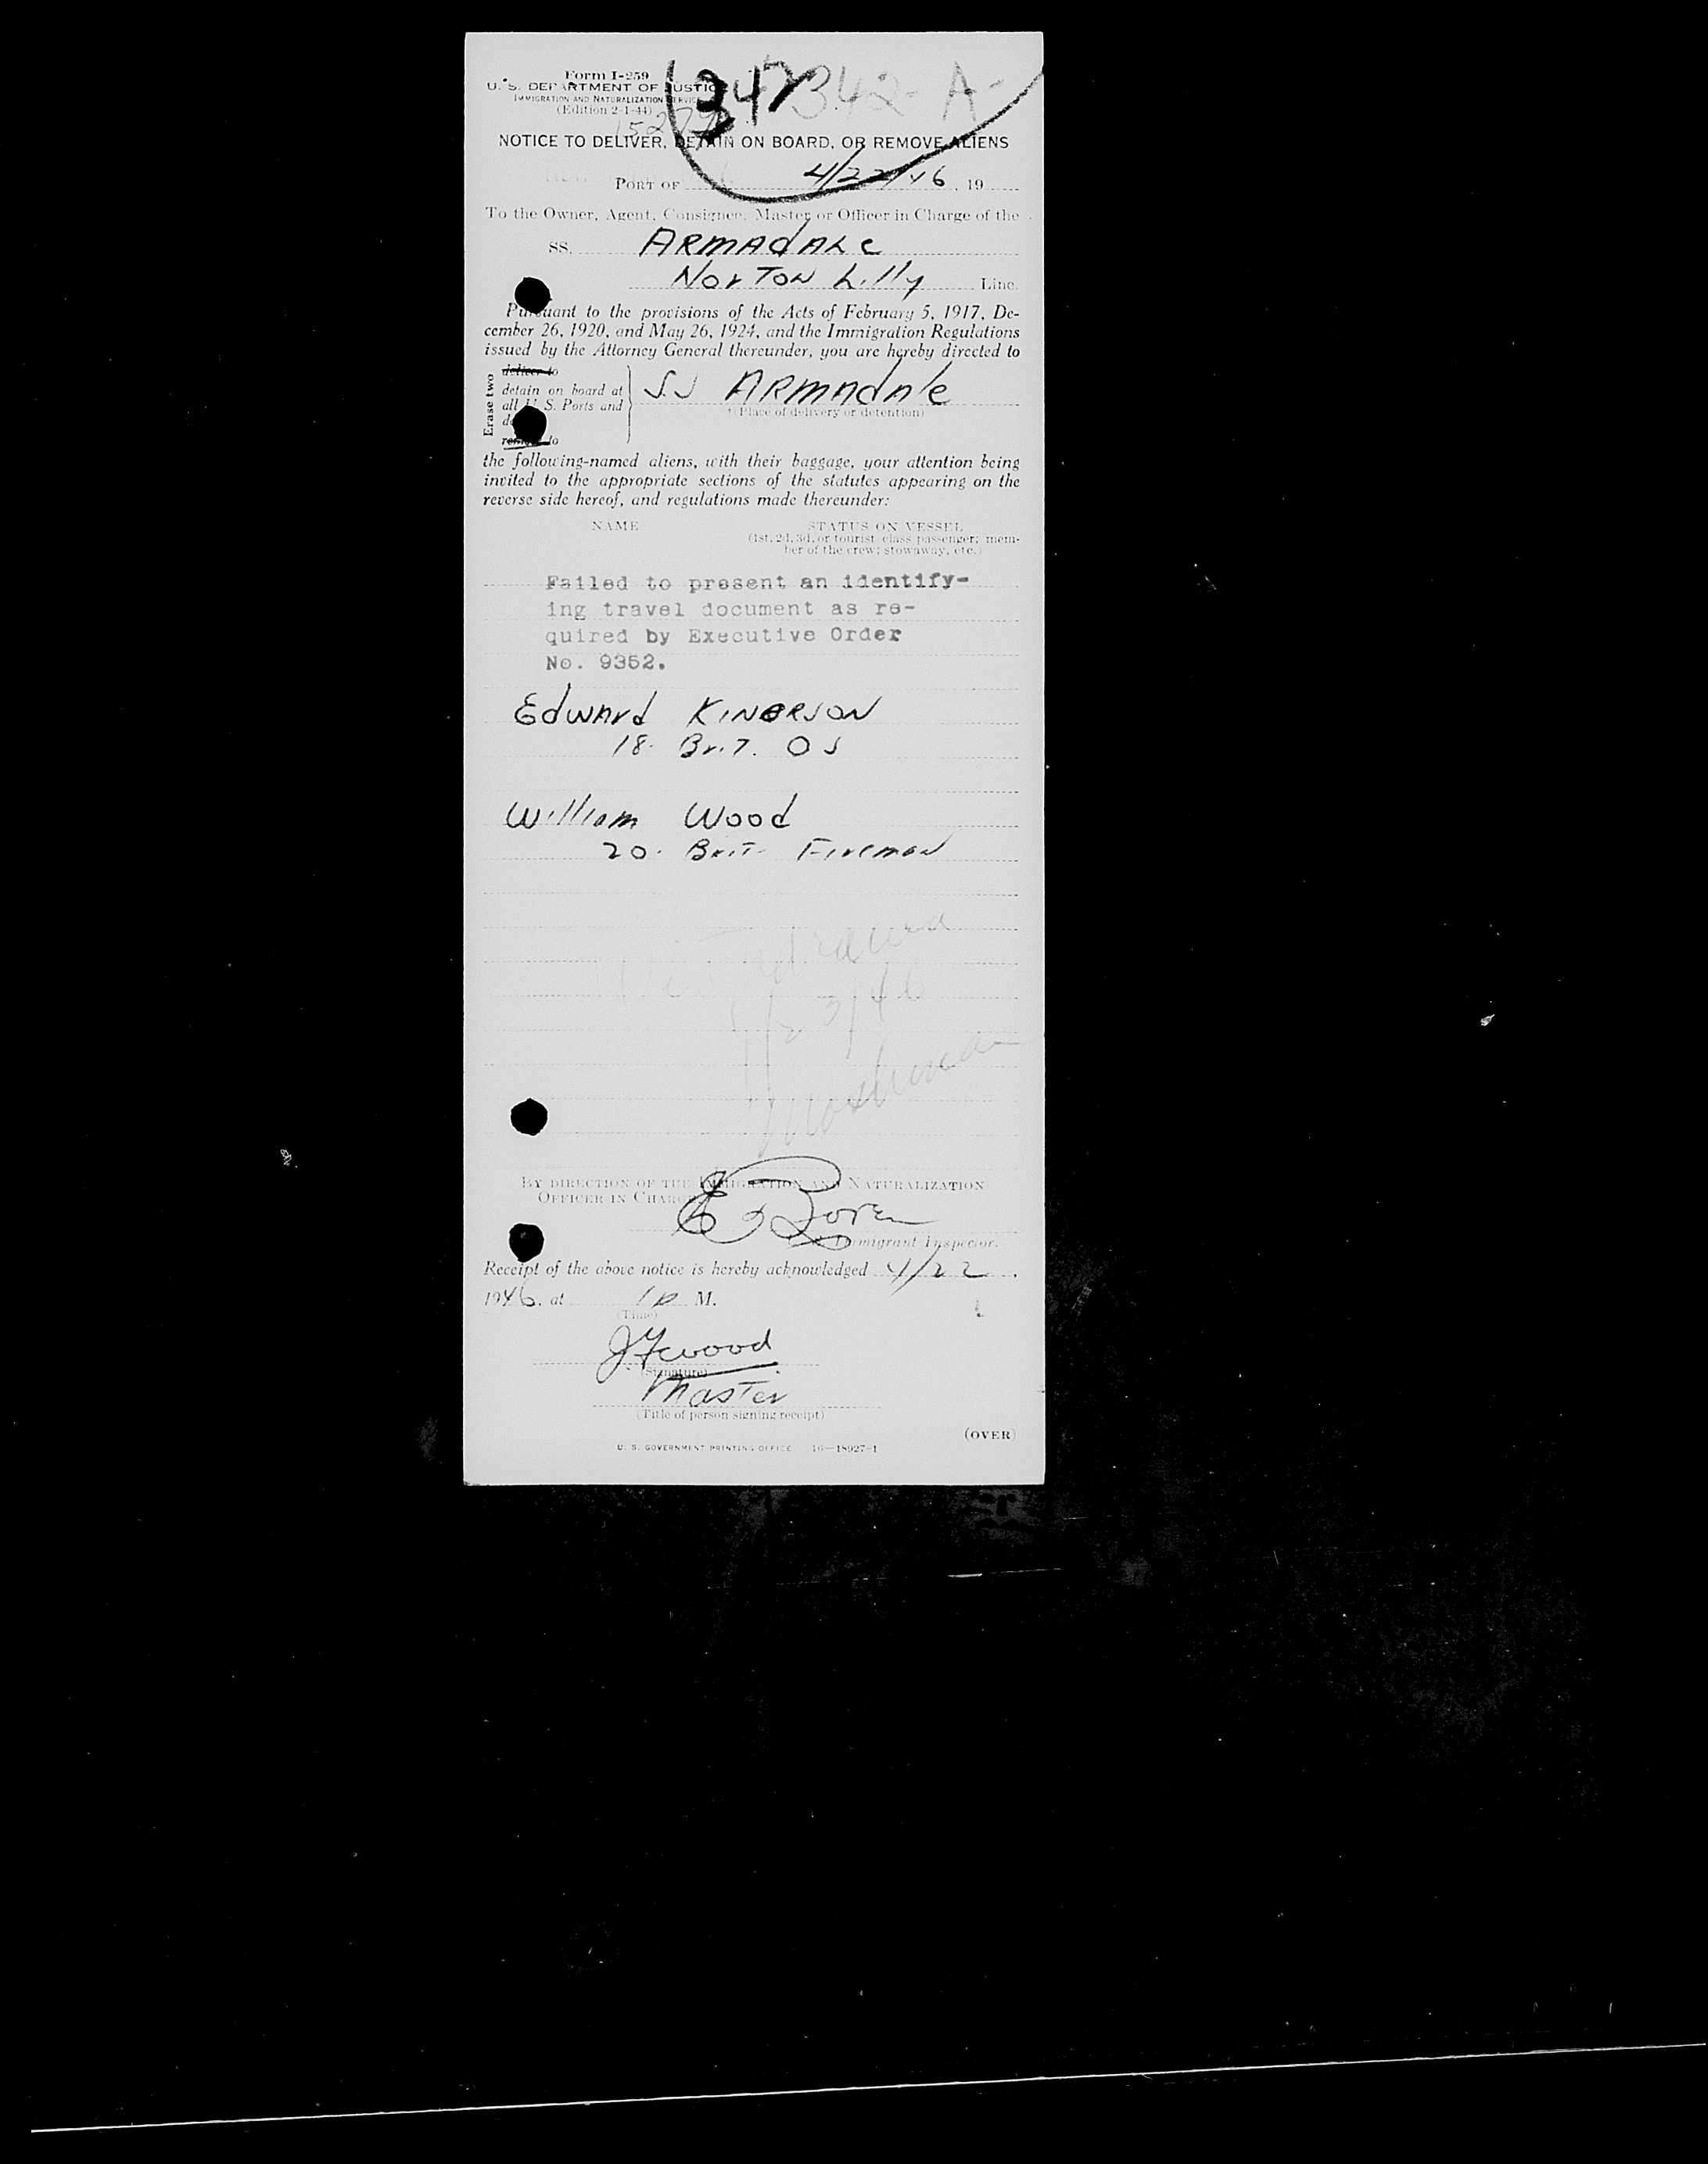 Form I-259
U. S. DEPARTMENT OF JUSTICE
IMMIGRATION AND NATURALIZATION SERVICE
(Edition 2-1-44)
347 342-A-
NOTICE TO DELIVER, DETAIN ON BOARD, OR REMOVE ALIENS
PORT OF 4/22/46, 19
To the Owner, Agent, Consignee, Master or Officer in Charge of the
SS. ARMAdALe
NorTon Lilly Line.
Pursuant to the provisions of the Acts of February 5, 1917, De-
cember 26, 1920, and May 26, 1924, and the Immigration Regulations
issued by the Attorney General thereunder, you are hereby directed to
Erase two
deliver to
detain on board at
all U. S. Ports and
remove to
SS ARMAdAle
(Place of delivery or detention)
the following-named aliens, with their baggage, your attention being
invited to the appropriate sections of the statutes appearing on the
reverse side hereof, and regulations made thereunder:
NAME STATUS ON VESSEL
(1st, 2d, 3d, or tourist class passenger; mem-
ber of the crew; stowaway, etc.)
Failed to present an identify-
ing travel document as re-
quired by Executive Order
No. 9352.
Edward KINERSON
18. Brit. OS
William Wood
20. Brit. Fireman
BY DIRECTION OF THE IMMIGRATION AND NATURALIZATION
OFFICER IN CHARGE
Immigrant Inspector.
Receipt of the above notice is hereby acknowledged 4/22.
1946. at 1 p M.
(Time)
(Signature)
Master
(Title of person signing receipt)
(OVER)
U. S. GOVERNMENT PRINTING OFFICE 16—18927-1